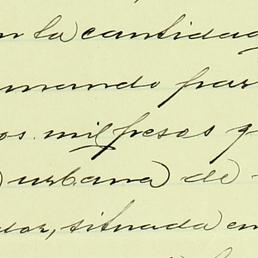 n la cantidad
mando par
os mil pesos y
urbana de
dor, situada en